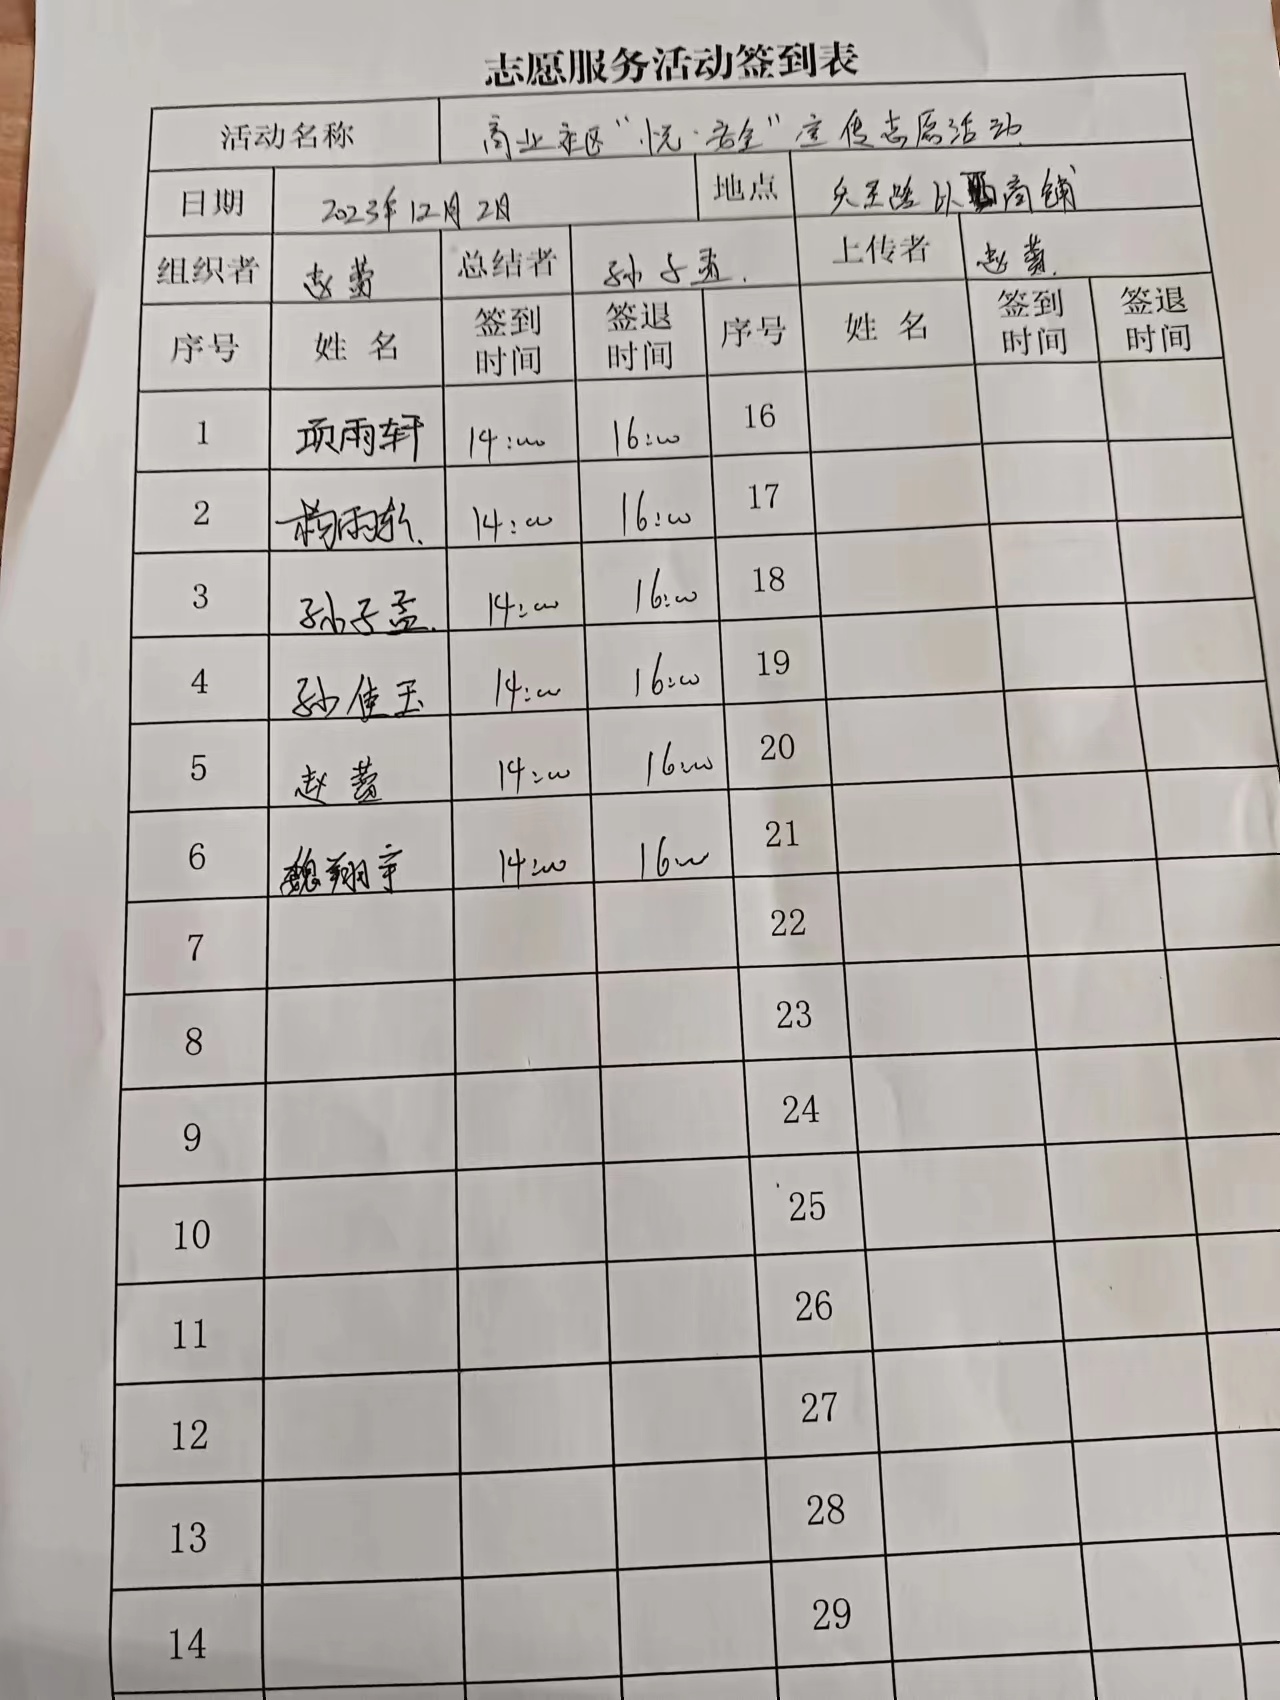 志愿服务活动签到表
活动名称 商业社区“悦·安全”宣传志愿活动
日期 2023年12月2日 地点 路以西商铺
组织者 赵 总结者 孙子孟. 上传者 赵
序号 姓 名 签到时间 签退时间 序号 姓 名 签到时间 签退时间
1 项雨轩 14:00 16:00 16
2 杨雨轩. 14:00 16:00 17
3 孙子孟. 14:00 16:00 18
4 孙佳玉 14:00 16:00 19
5 赵 14:00 16:00 20
6 魏翔宇 14:00 16:00 21
7 22
8 23
9 24
10 25
11 26
12 27
13 28
14 29